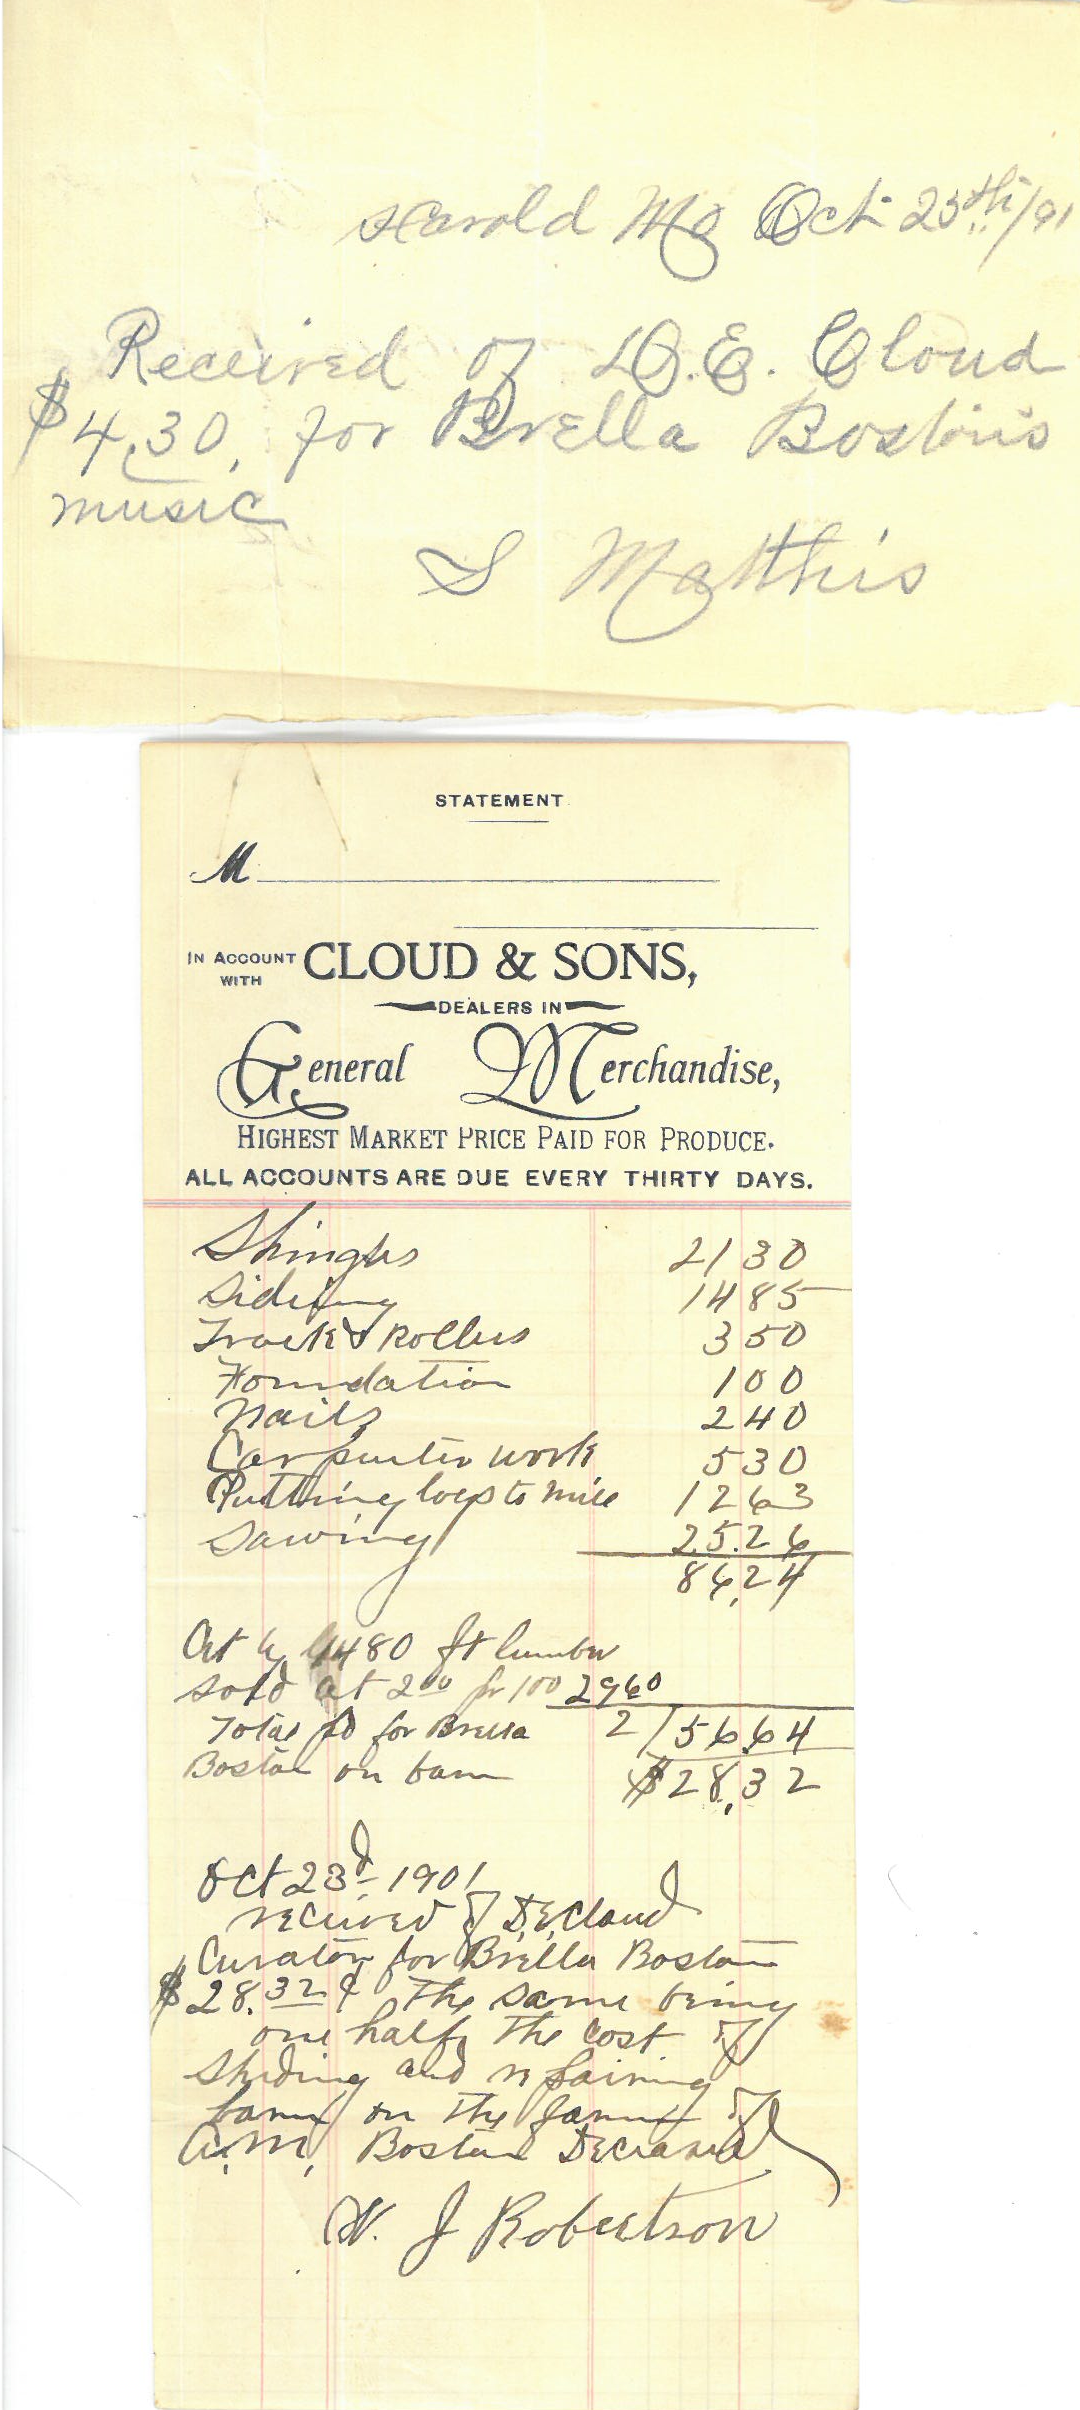 Harold Mo Oct 25th/91
Received of D.E. Cloud
$4.30, for Brella Boston's
music
S Matthis
STATEMENT
M
IN ACCOUNT WITH CLOUD & SONS,
DEALERS IN
General Merchandise,
HIGHEST MARKET PRICE PAID FOR PRODUCE.
ALL ACCOUNTS ARE DUE EVERY THIRTY DAYS.
Shingles 21 30
Sideing 14 85
Track & Rollers 3 50
Foundation 1 00
Nails 2 40
Carpenter work 5 30
Putting logs to mill 12 63
Sawing 25.26
86,24
1480 ft lumber
sold at 2 00 pr 100 2960
Total pd for Brella 2/56.64
Boston on barn $28,32
Oct 23d 1901
received of D.E. Cloud
Curator for Brella Boston
$28.32 ¢ The same being
one half the cost of
Sheding and repairing
barn on the farm of
A. M. Boston Deceased
W. J Robertson